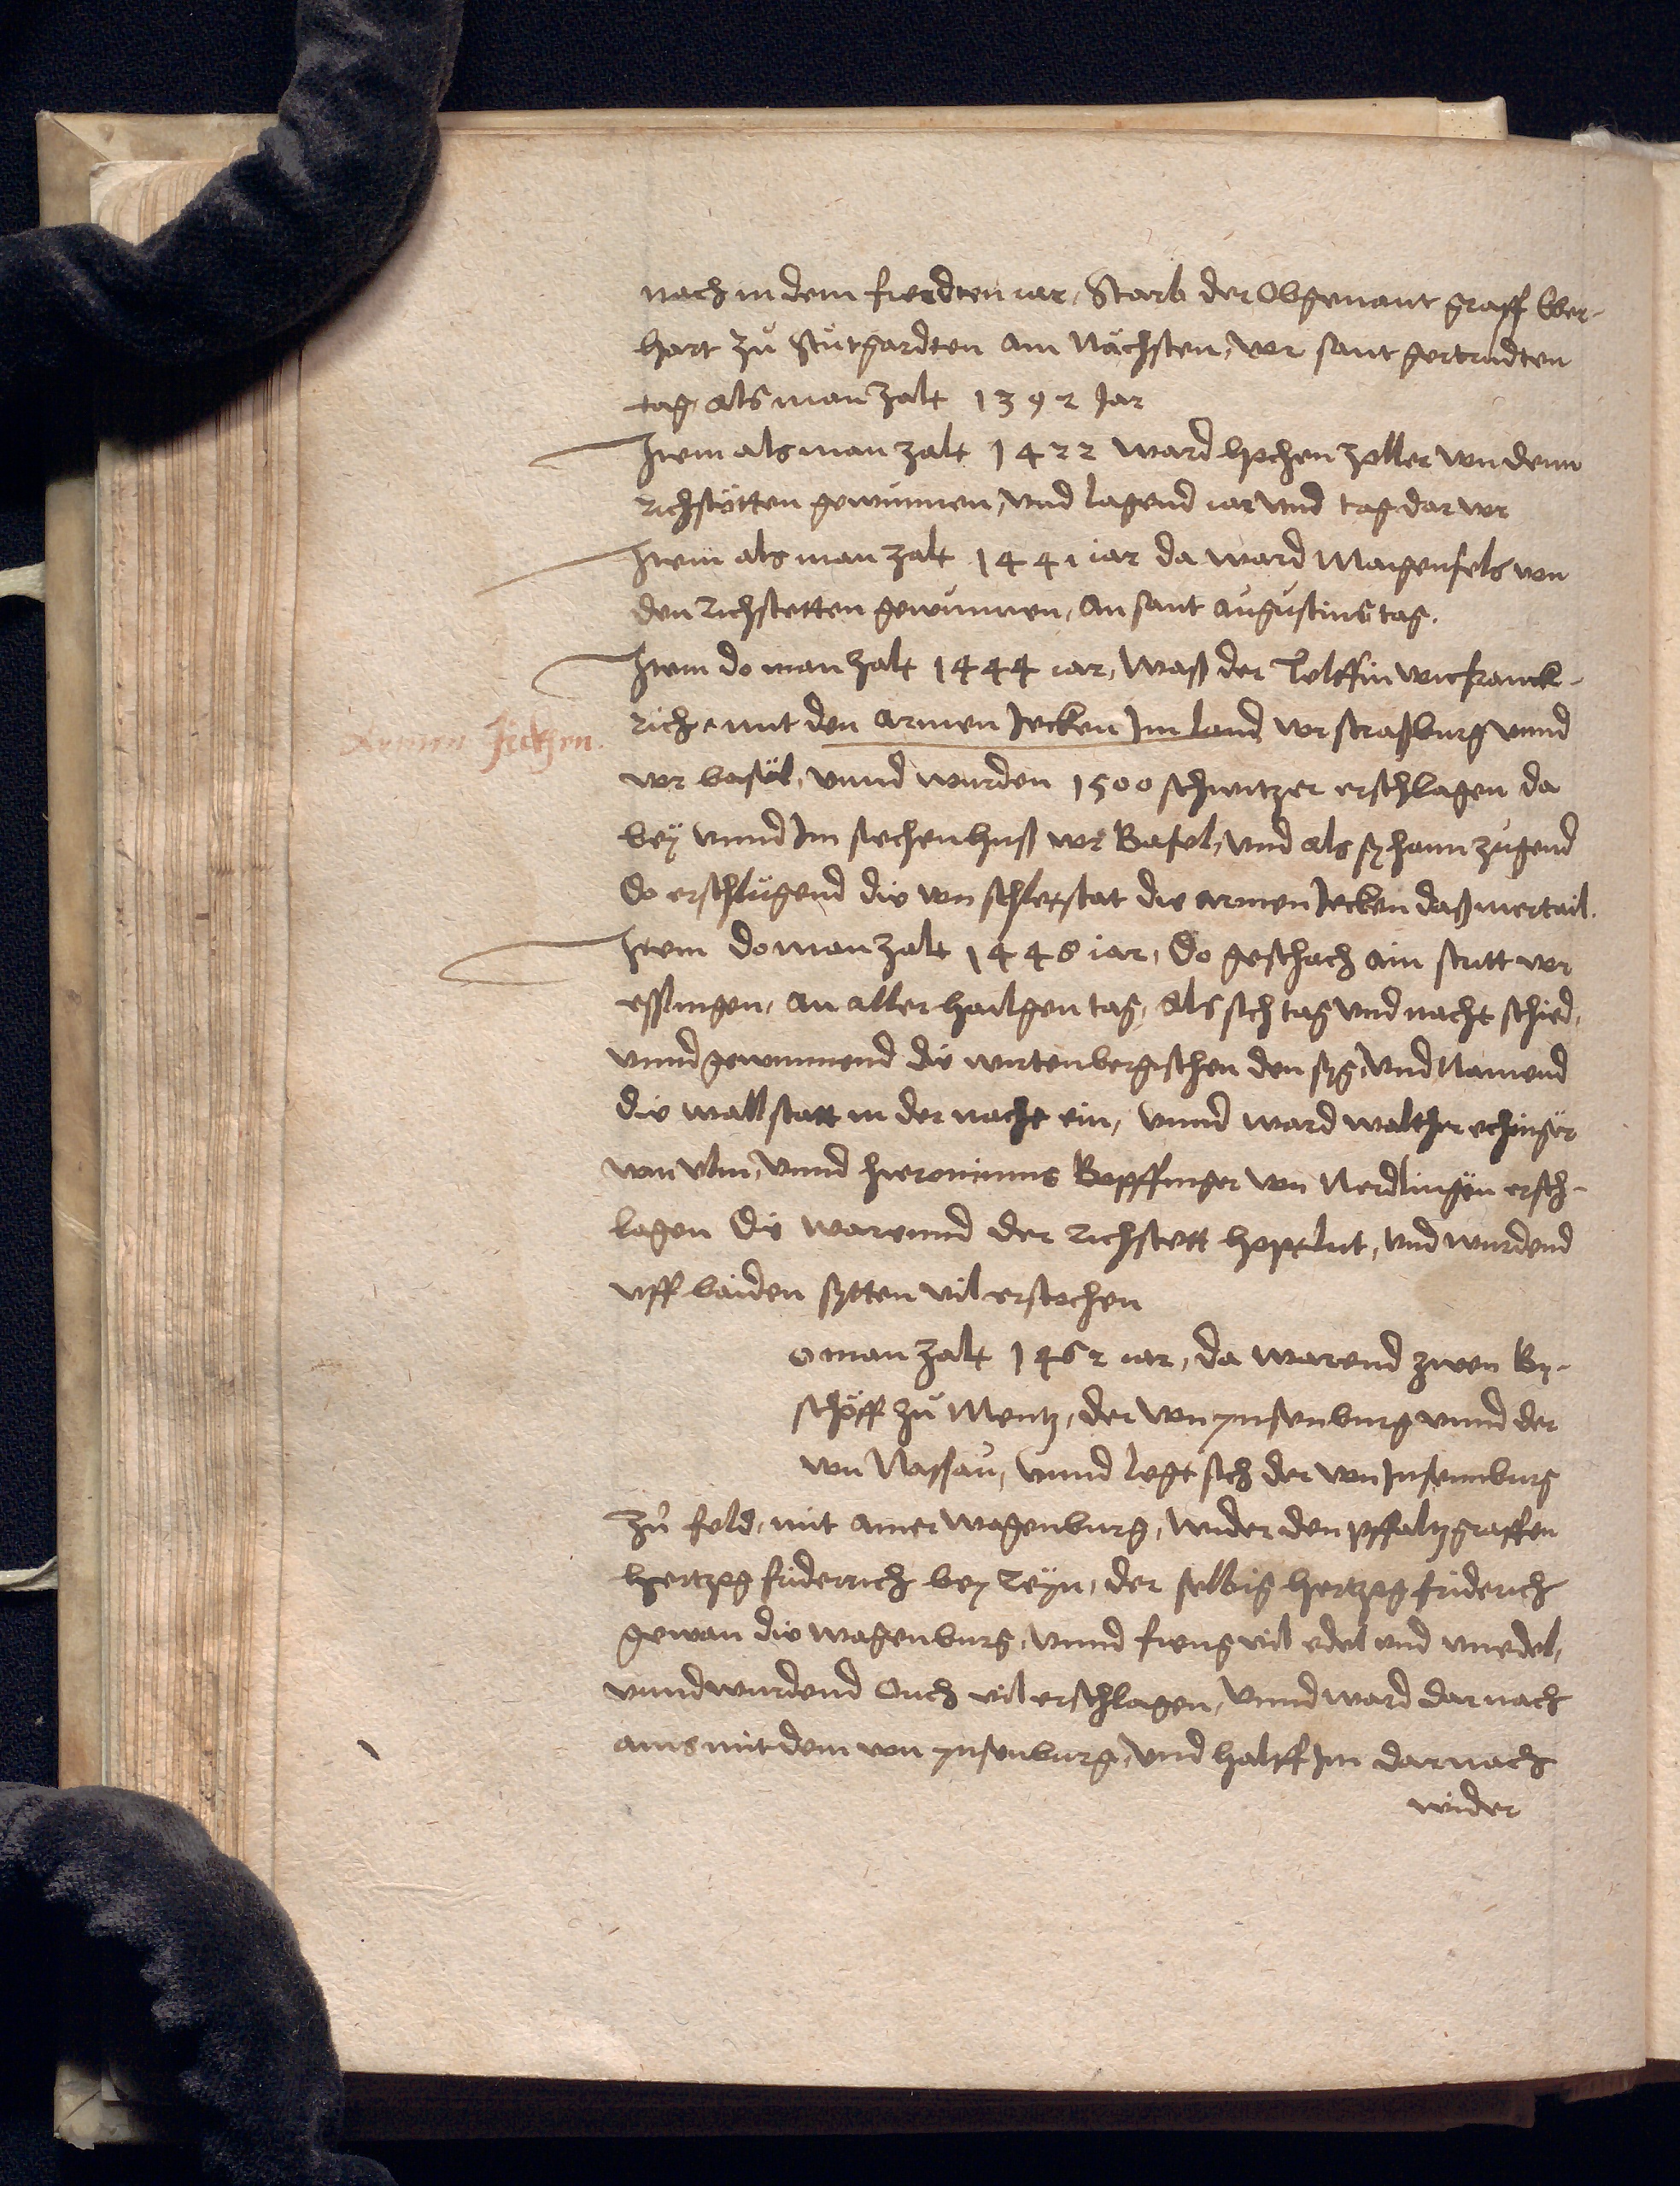 nach in dem fierdten iar, Starb der Obgenant graff Eber-
hart zů Stůtgardten am Nächsten, vor sant gertrudten
tag, als man zalt 1392 Jar
Item als man zalt 1422 ward hochen zoller von denn
Richstötten gewunnen, vnd lagend iar vnd tag dar vor
Item als man zalt 1441 iar da ward Maigenfels von
den Richstetten gewunnen, an sant augustins tag.
Item do man zalt 1444 iar, Waß der Telffin von franck-
rich mit den armen Jecken Im land vor straßburg vnnd
Armen Jecken.
vor basel, vnnd wurden 1500 schwitzer erschlagen da
bey vnnd Im siechenhuß vor Basel, vnd als sy haim zugend
do erschlůgend die von schletstat die armen Jecken daß mertail.
Item do man zalt 1448 iar, do geschach ain stritt vor
esslingen, an aller hailgen tag, als sich tag vnd nacht schied,
vnnd gewunnend die wirtenbergischen den syg, vnd Namend
die wallstatt in der nacht ein, vnnd ward walther echinger
von vlm, vnnd hieronimus Bopffinger von Nerdlingen ersch-
lagen die warennd der Richstett hoptlut, vnd wurdend
vff baiden sytten vil erstochen
o man zalt 1462 iar, da warend zwen By-
schöff zů Mentz, der von ynsenburg vnnd der
von Nassau, vnnd legt sich der von Insennburg
zů feld, mit ainer wagenburg, wider den pffaltzgraffen
hertzog friderrich bey Reyn, der selbig hertzog friderich
gewan die wagenburg, vnnd fieng vil edel vnd vnedel,
vnnd wurdend Ouch vil erschlagen, vnnd ward darnach
ains mit dem von ynsenburg, vnd halff Im darnach
wider